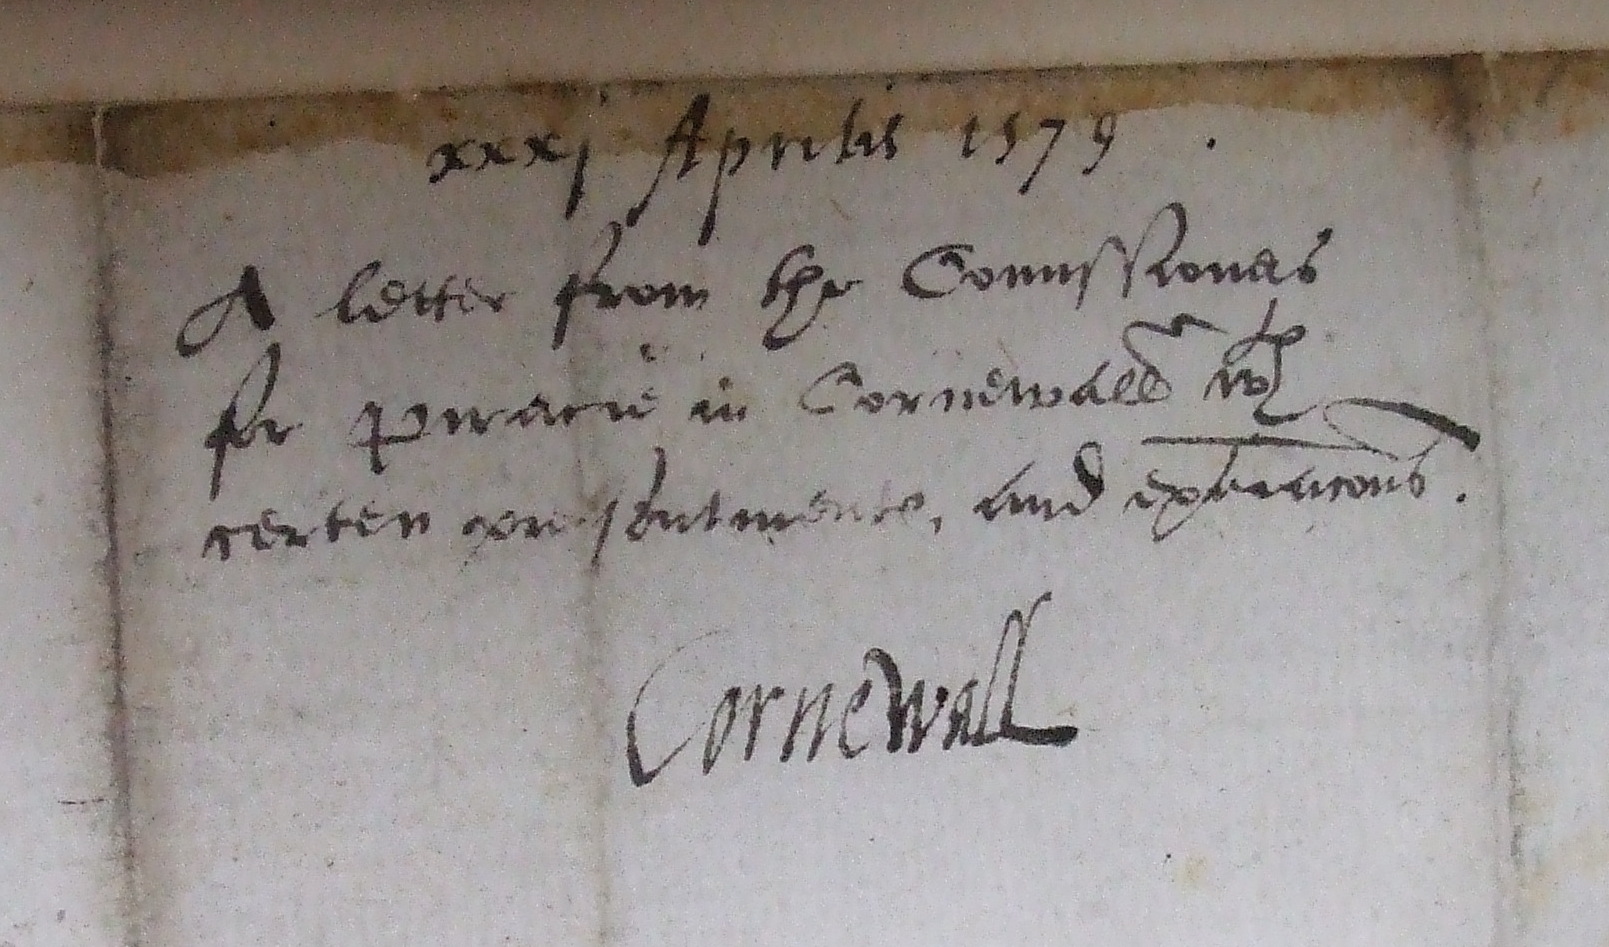 xxxj Aprilis 1579 .
A letter from the Comissioners
for piracie in Cornewall wth
certen presentments, and
Cornewall